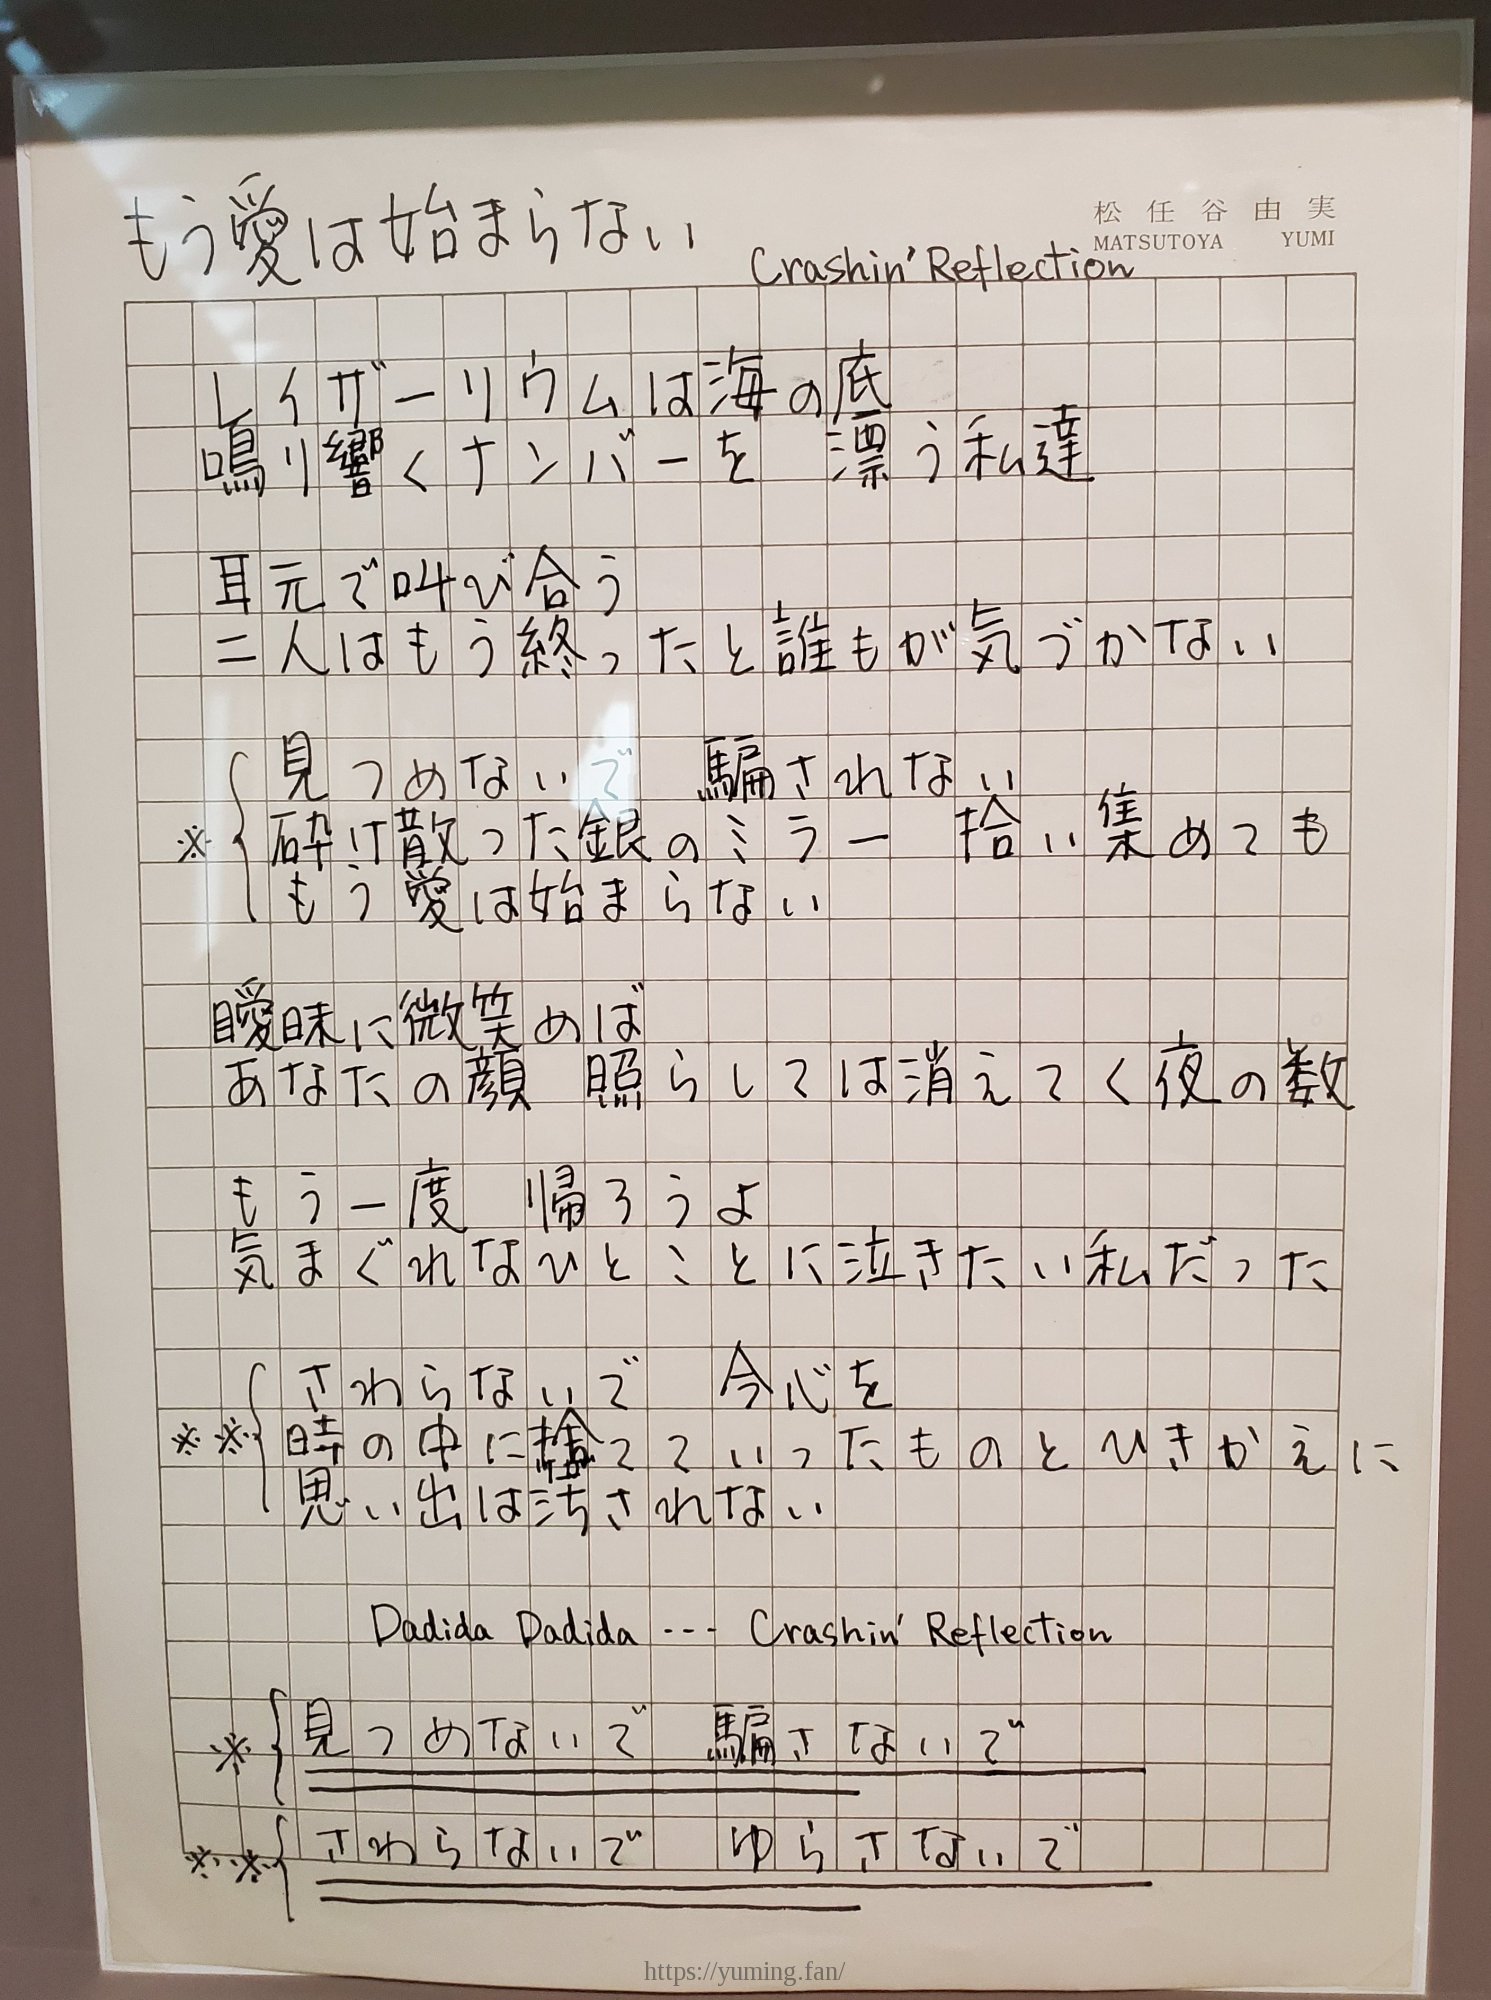 もう愛は始まらない
松任谷由実
MATSUTOYA YUMI
Crashin' Reflection
レイザーリウムは海の底
鳴り響くナンバーを 漂う私達
耳元で叫び合う
二人はもう終ったと誰もが気づかない
見つめないで 騙されない
※ 砕け散った銀のミラー 拾い集めても
もう愛は始まらない
曖昧に微笑めば
あなたの顔 照らしては消えてく夜の数
もう一度 帰ろうよ
気まぐれなひとことに泣きたい私だった
さわらないで 今心を
※※ 時の中に捨てていったものとひきかえに
思い出は汚されない
Dadida Dadida --- Crashin' Reflection
※ 見つめないで 騙さないで
※※ さわらないで ゆらさないで
https://yuming.fan/